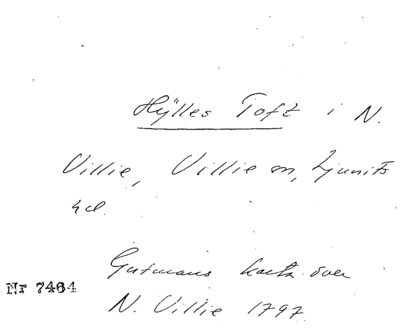 Hÿlles Toft i N.
Villie, Villie sn, Ljunits
hd.
Gutmans karta över
Nr 7464
N. Villie 1797